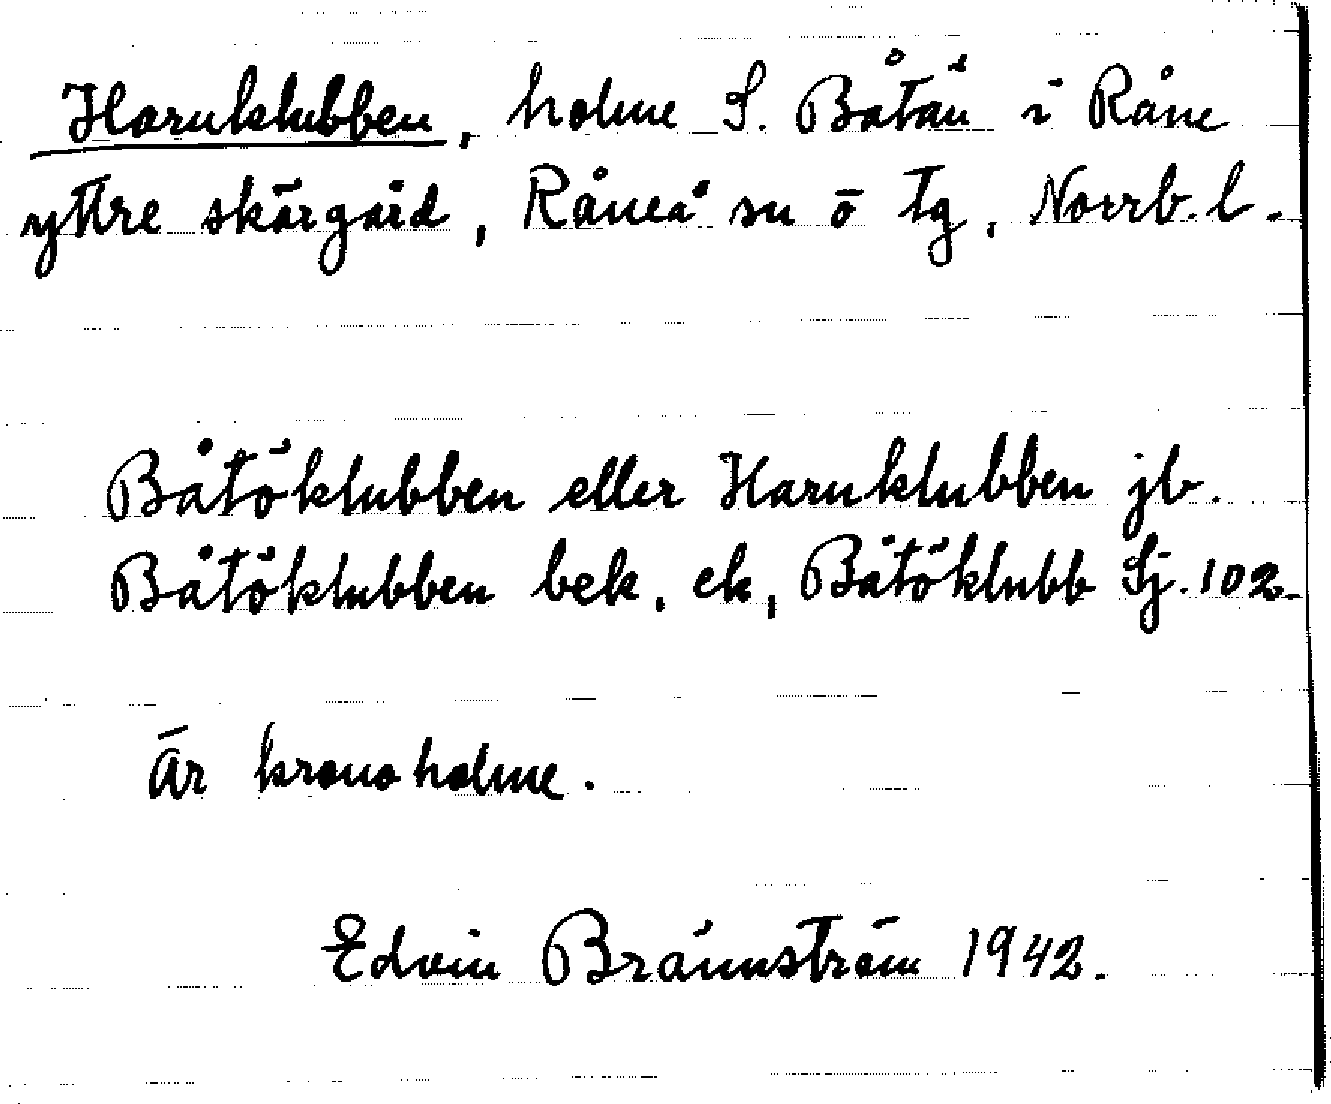 Haruklubben, holme S. Båtön i Råne
yttre skärgård, Råneå sn ö tg, Norrb. l.
Båtöklubben eller Haruklubben jb.
Båtöklubben bek. ek, Båtöklubb Sj. 102.
Är kronoholme.
Edvin Brännström 1942.